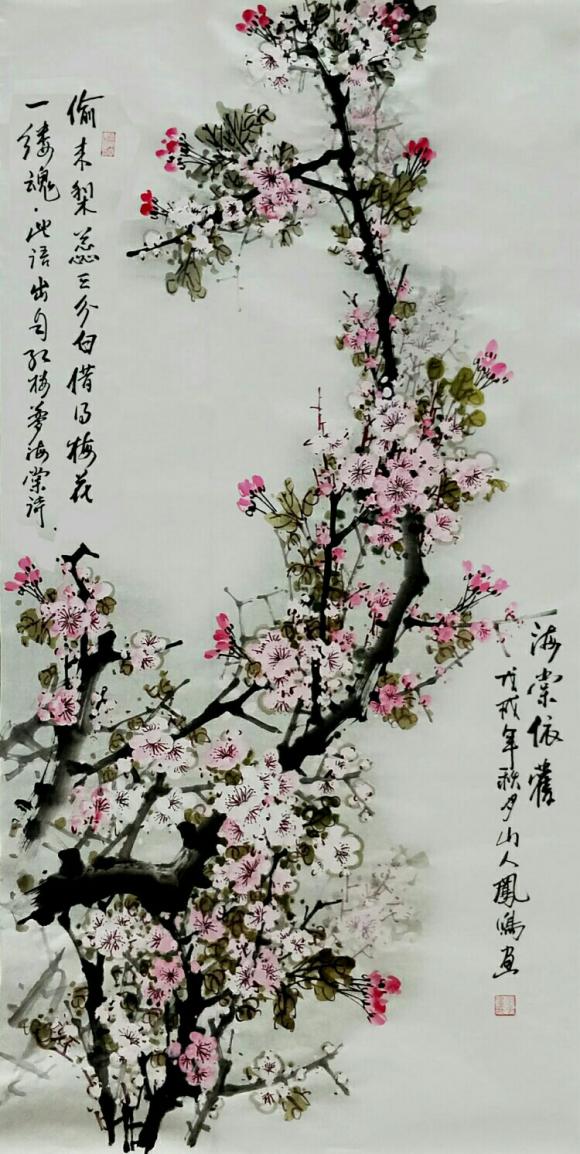 海棠依舊
戊戌年秋月山人鳳鸣画
偷来梨蕊三分白借得梅花
一缕魂.此语出自红楼梦海棠诗.